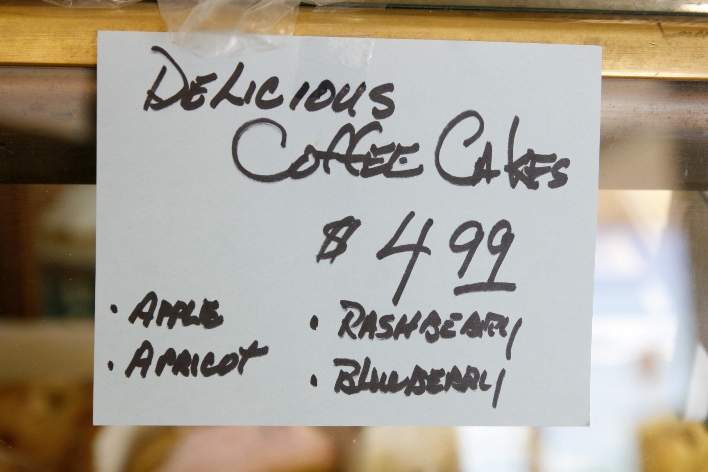 DELICIOUS
COFFEE CAKES
$ 4 99
• APPLE
• APRICOT
• RASHBERRY
• BLUUBERRLY